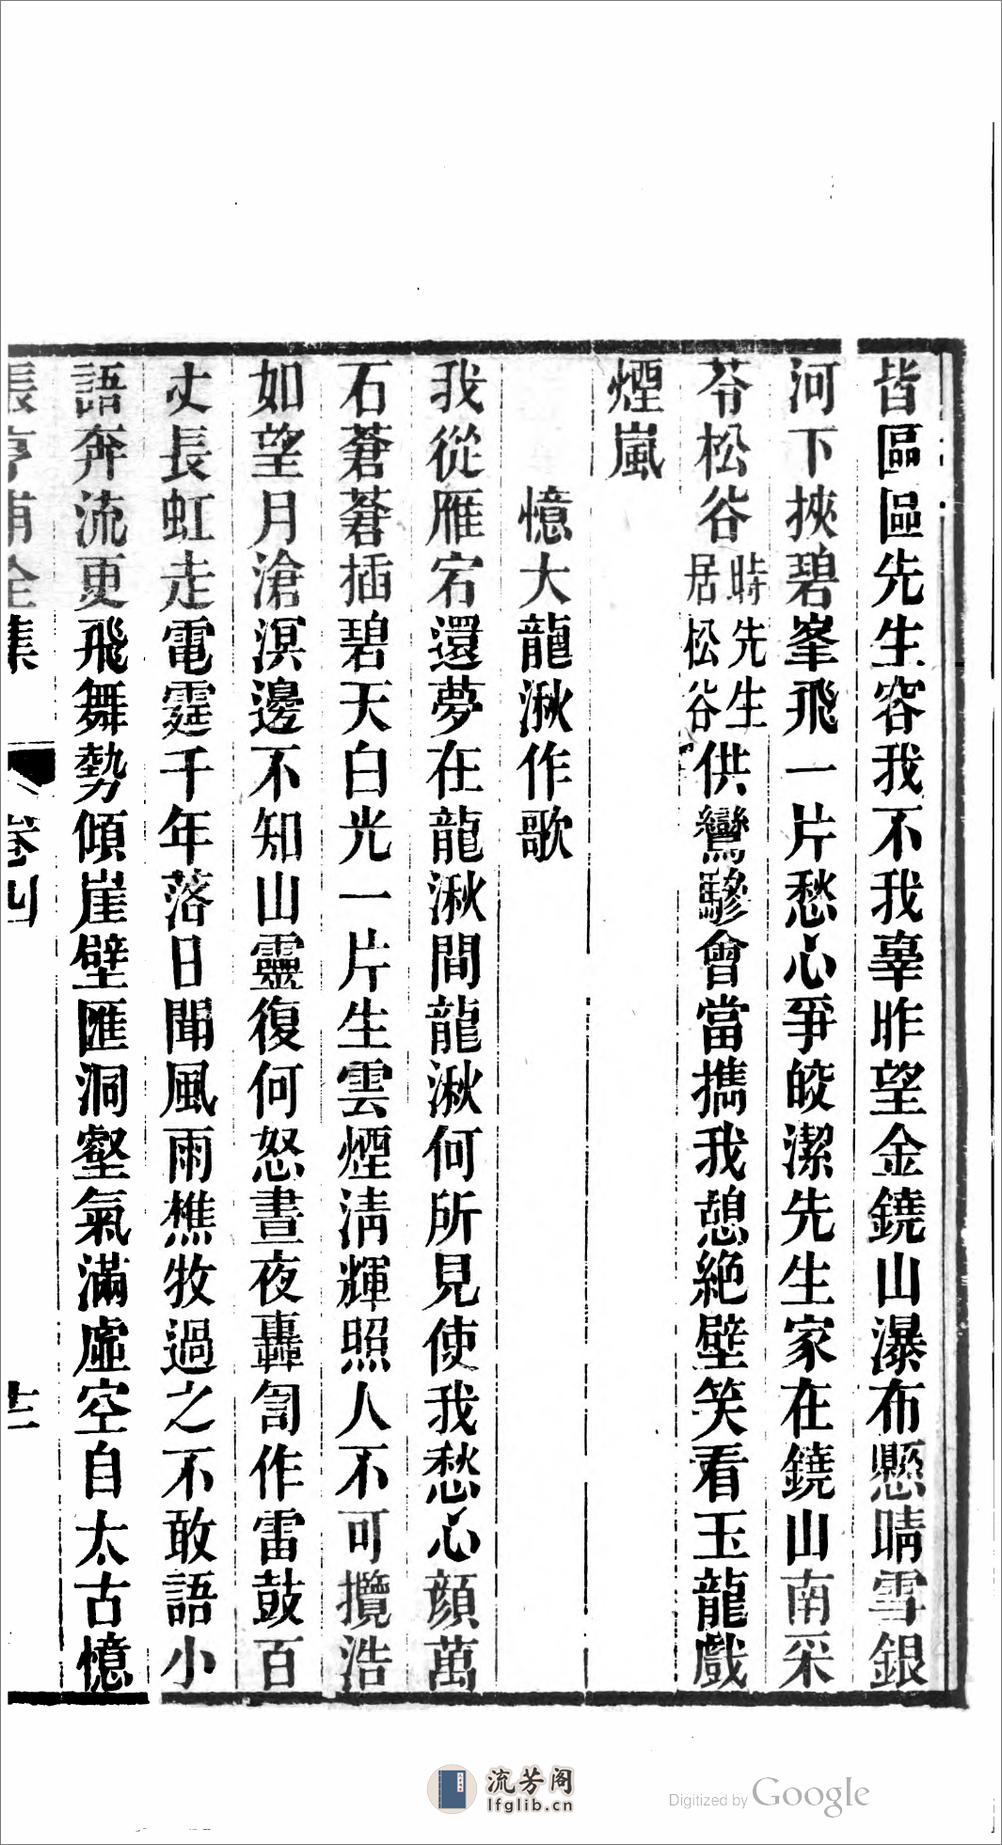 皆區區先生容我不我辜昨望金鐃山瀑布懸晴雪銀
河下挾碧峯飛一片愁心爭皎潔先生家在鐃山南采
苓松谷時先生居松谷供鸞驂會當攜我憩絕壁笑看玉龍戲
煙嵐
憶大龍湫作歌
我從雁宕還夢在龍湫間龍湫何所見使我愁心顏萬
石蒼蒼插碧天白光一片生雲煙淸輝照人不可攬浩
如望月滄溟邊不知山靈復何怒晝夜轟訇作雷鼓百
丈長虹走電霆千年落日聞風雨樵牧過之不敢語小
語奔流更飛舞勢傾崖壁匯洞壑氣滿虛空自太古憶
張亨甫全集 卷四 十二
流芳阁
lfglib.cn
Digitized by Google